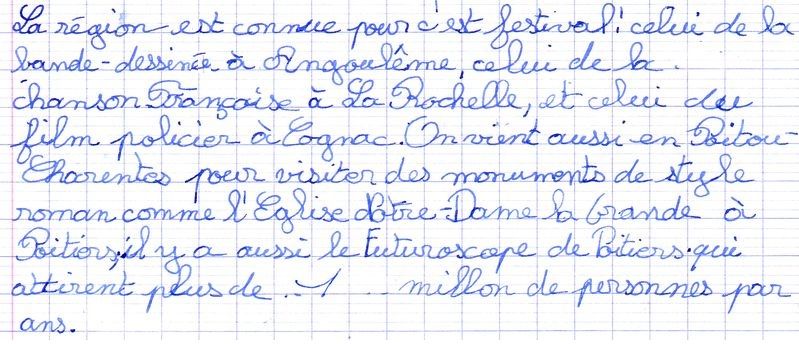 La région est connue pour c'est festival: celui de la
bande-dessinée à Angoulême, celui de la
chanson Française à La Rochelle, et celui du
film policier à Cognac. On vient aussi en Poitou-
Charentes pour visiter des monuments de style
roman comme l'Eglise Notre-Dame la Grande à
Poitiers, il y a aussi le Futuroscope de Poitiers qui
attirent plus de ...1... millon de personnes par
ans.